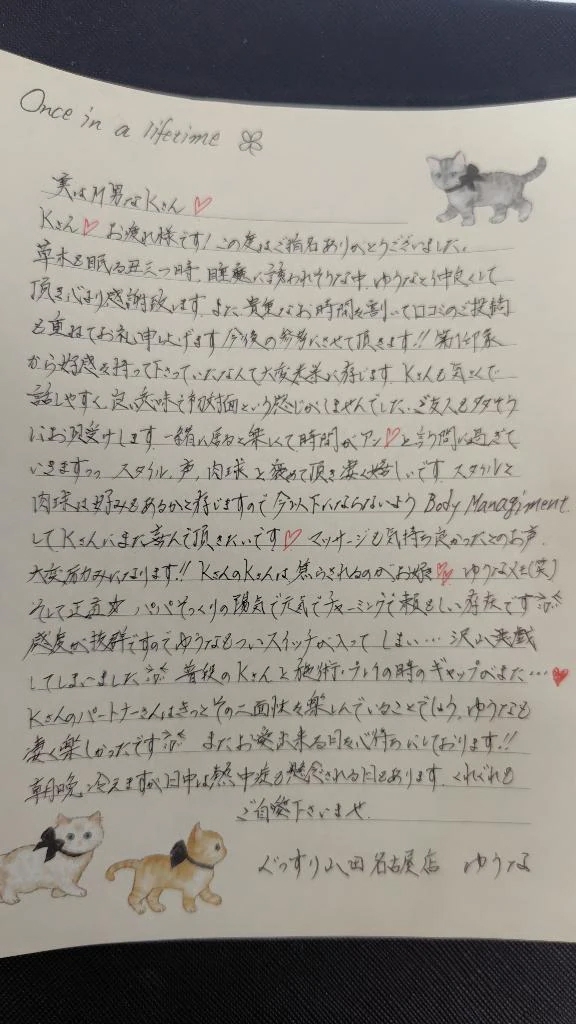 Once in a lifetime
実はM男なKさん♡
Kさん♡お疲れ様です!この度はご指名ありがとうございました。
草木も眠る丑三つ時、睡魔に誘われそうな中、ゆうなと仲良くして
頂き心より感謝致します。また、貴重なお時間を割いて口コミのご投稿
も重ねてお礼申し上げます 今後の参考にさせて頂きます!! 第一印象
から好感を持って下さっていたなんて大変光栄に存じます。Kさんも気さくで
話しやすく、良い意味で初対面という感じがしませんでした。ご友人も多そう
にお見受けします 一緒に居ると楽しくて時間がアッ♡と言う間に過ぎて
いきますっっ スタイル、声、肉球と褒めて頂き凄く嬉しいです スタイルと
肉球は好みもあるかと存じますので今以下にならないよう Body Managiment
してKさんにまた喜んで頂きたいです♡ マッサージも気持ち良かったとのお声
大変励みになります!! KさんのKさんは焦らされるのがお好♡ ゆうなくん(笑)
そして正直 パパそっくりの陽気で元気でチャーミングで頼もしい存在です
感度が抜群ですのでゆうなもついスイッチが入ってしまい… 沢山悪戯
してしまいました 普段のKさんと施術・プレイの時のギャップがまた…♥
Kさんのパートナーさんはきっとその二面性を楽しんでいることでしょう。ゆうなも
凄く楽しかったです またお逢い出来る日を心待ちにしております!!
朝晩、冷えますが日中は熱中症も懸念される日もあります。くれぐれも
ご自愛下さいませ。
ぐっすり山田 名古屋店 ゆうな